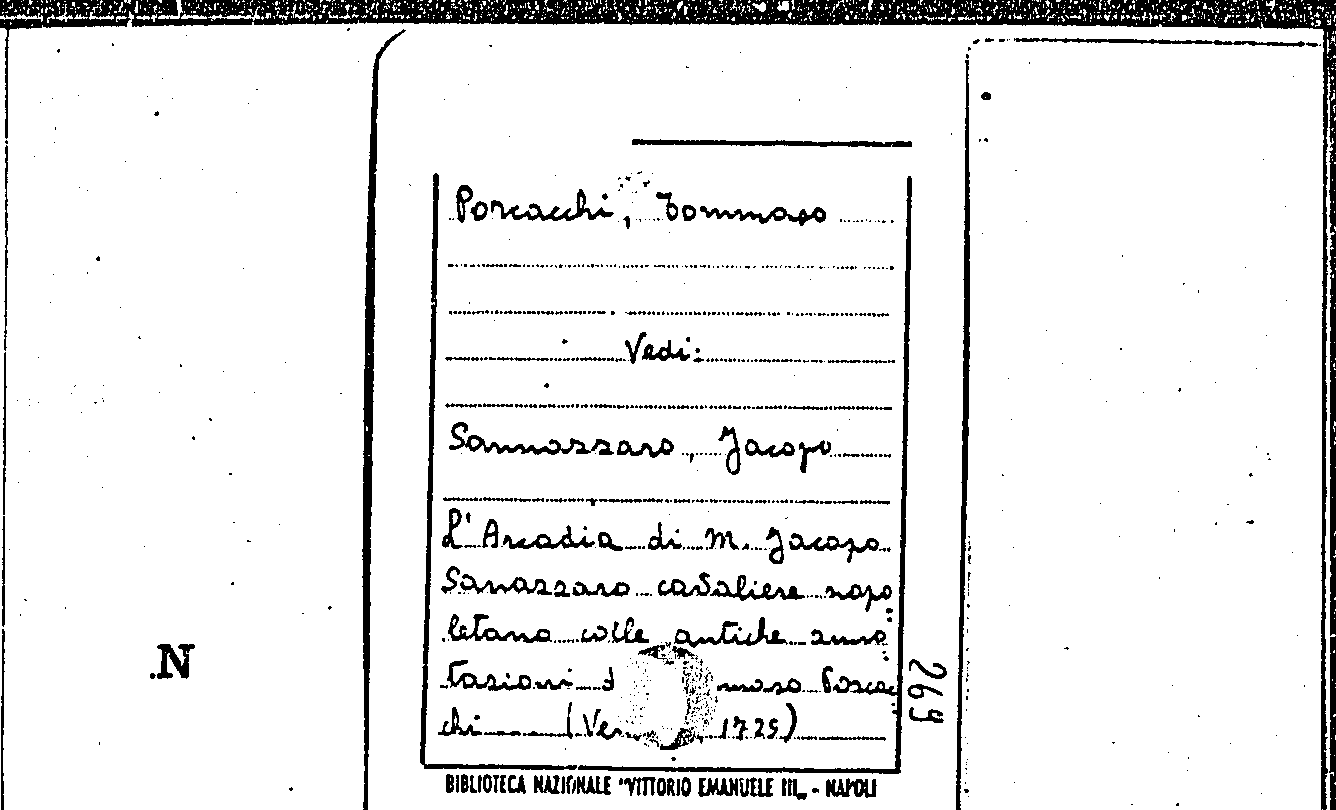 Porcacchi, Tommaso
Vedi:
Sannazzaro, Jacopo
L'Arcadia di M. Jacopo
Sanazzaro cavaliere napo
letano colle antiche anno
tazioni maso Porcac
chi (Ver 1725)
269
.N
BIBLIOTECA NAZIONALE "VITTORIO EMANUELE III„ - NAPOLI